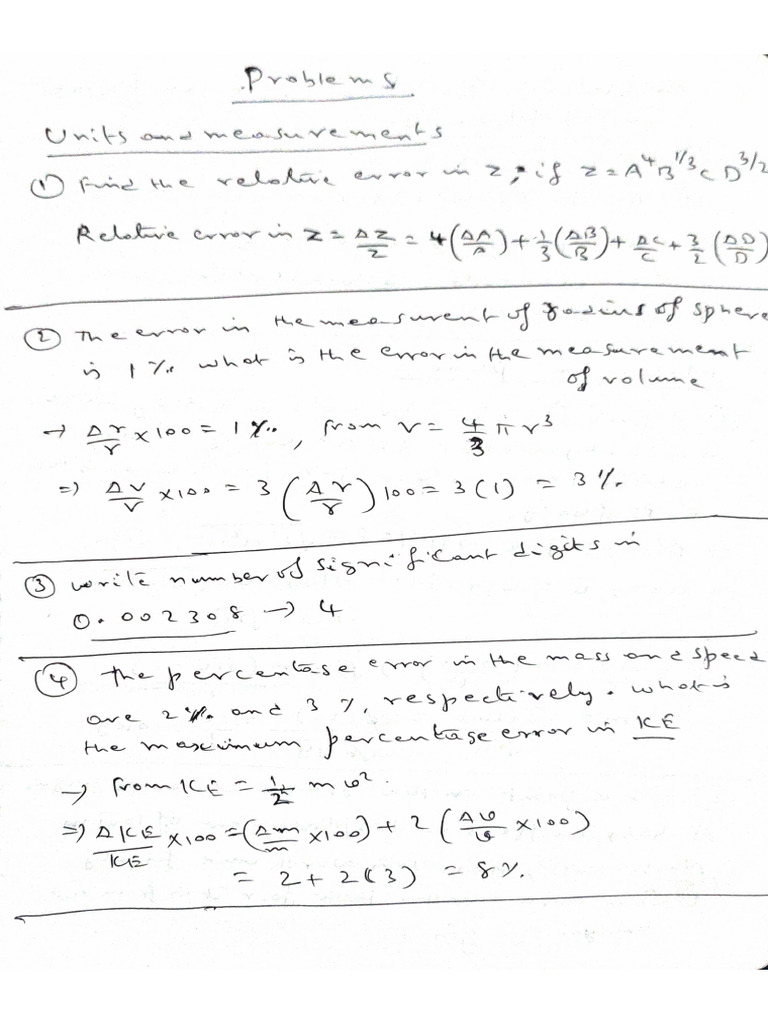 Problems
Units and measurements
① Find the relative error in Z, if Z = A⁴B^1/3 C D^3/2
Relative error in Z = ΔZ/Z = 4(ΔA/A) + 1/3(ΔB/B) + ΔC/C + 3/2(ΔD/D)
② The error in the measurent of radius of sphere
is 1 %. what is the error in the measurement
of volume
→ Δr/r × 100 = 1 %. , from v = 4/3 π r³
⇒ Δv/v × 100 = 3 (Δr/r) 100 = 3(1) = 3 %.
③ write number of significant digits in
0.002308 → 4
④ The percentage error in the mass and speed
are 2 %. and 3 %. respectively. what is
the maximum percentage error in KE
→ from KE = 1/2 m v².
⇒ ΔKE/KE × 100 = (Δm/m × 100) + 2 (Δv/v × 100)
= 2 + 2(3) = 8 %.